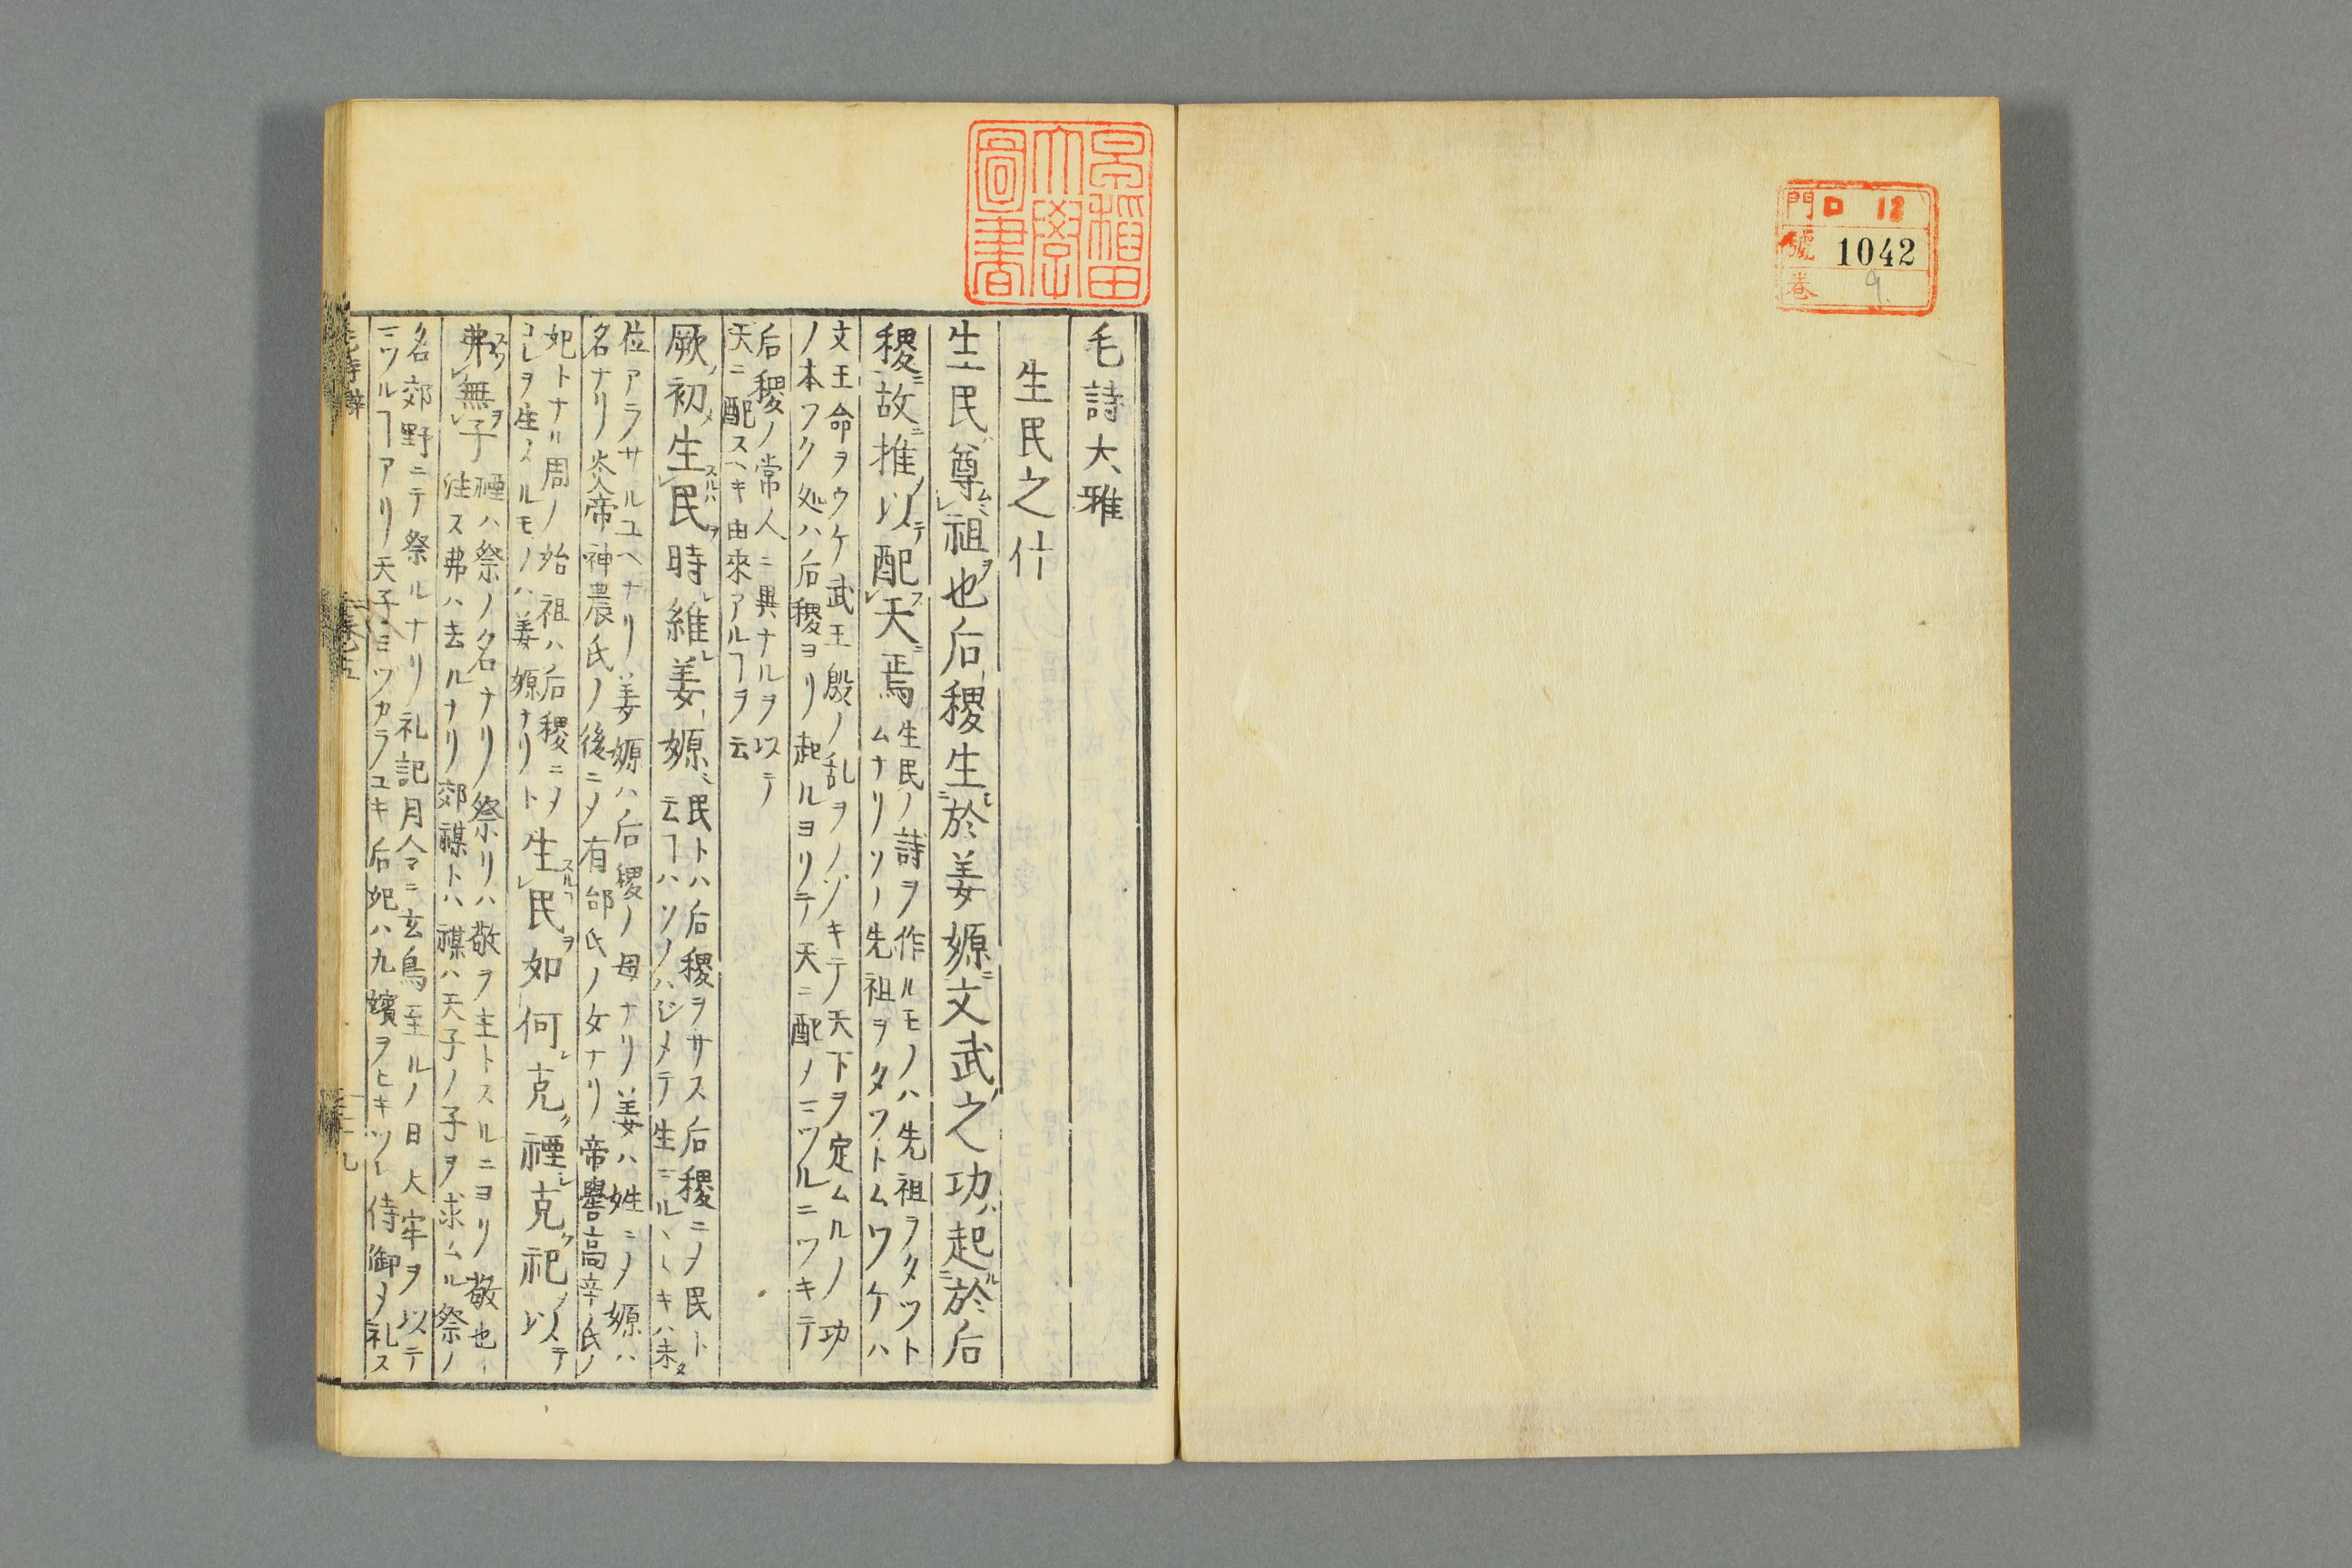 門 ロ 12
號 1042
卷 9.
早稲田
大學
圖書
毛詩大雅
生民之什
生民尊祖也后稷生於姜嫄文武之功起於后
稷故推以配天焉
生民ノ詩ヲ作ルモノハ先祖ヲタツト
ムナリソノ先祖ヲタツトムワケハ
文王命ヲウケ武王殷ノ乱ヲノゾキテ天下ヲ定ムルノ功
ノ本ツク処ハ后稷ヨリ起ルヨリテ天ニ配ノミツルニツキテ
后稷ノ常人ニ異ナルヲ以テ
天ニ配スヘキ由來アルヿヲ云
厥初生民時維姜嫄
民トハ后稷ヲサス后稷ニメ民ト
云フハソノハジメテ生ミルヽキハ未タ
位アラサルユヘナリ姜嫄ハ后稷ノ母ナリ姜ハ姓ニメ嫄ハ
名ナリ炎帝神農氏ノ後ニメ有邰氏ノ女ナリ帝嚳高辛氏ノ
妃トナル周ノ始祖ハ后稷ニメ
コレヲ生メルモノハ姜嫄ナリト
生民如何克禋克祀以
弗無子
禋ハ祭ノ名ナリ祭リハ敬ヲ主トスルニヨリ敬也ト
注ス弗ハ去ルナリ郊禖トハ禖ハ天子ノ子ヲ求ムル祭ノ
名郊野ニテ祭ルナリ礼記月令ニ玄鳥至ルノ日大牢ヲ以テ
ミツルヿアリ天子ミツカラユキ后妃ハ九嬪ヲヒキツレ侍御メ礼ス